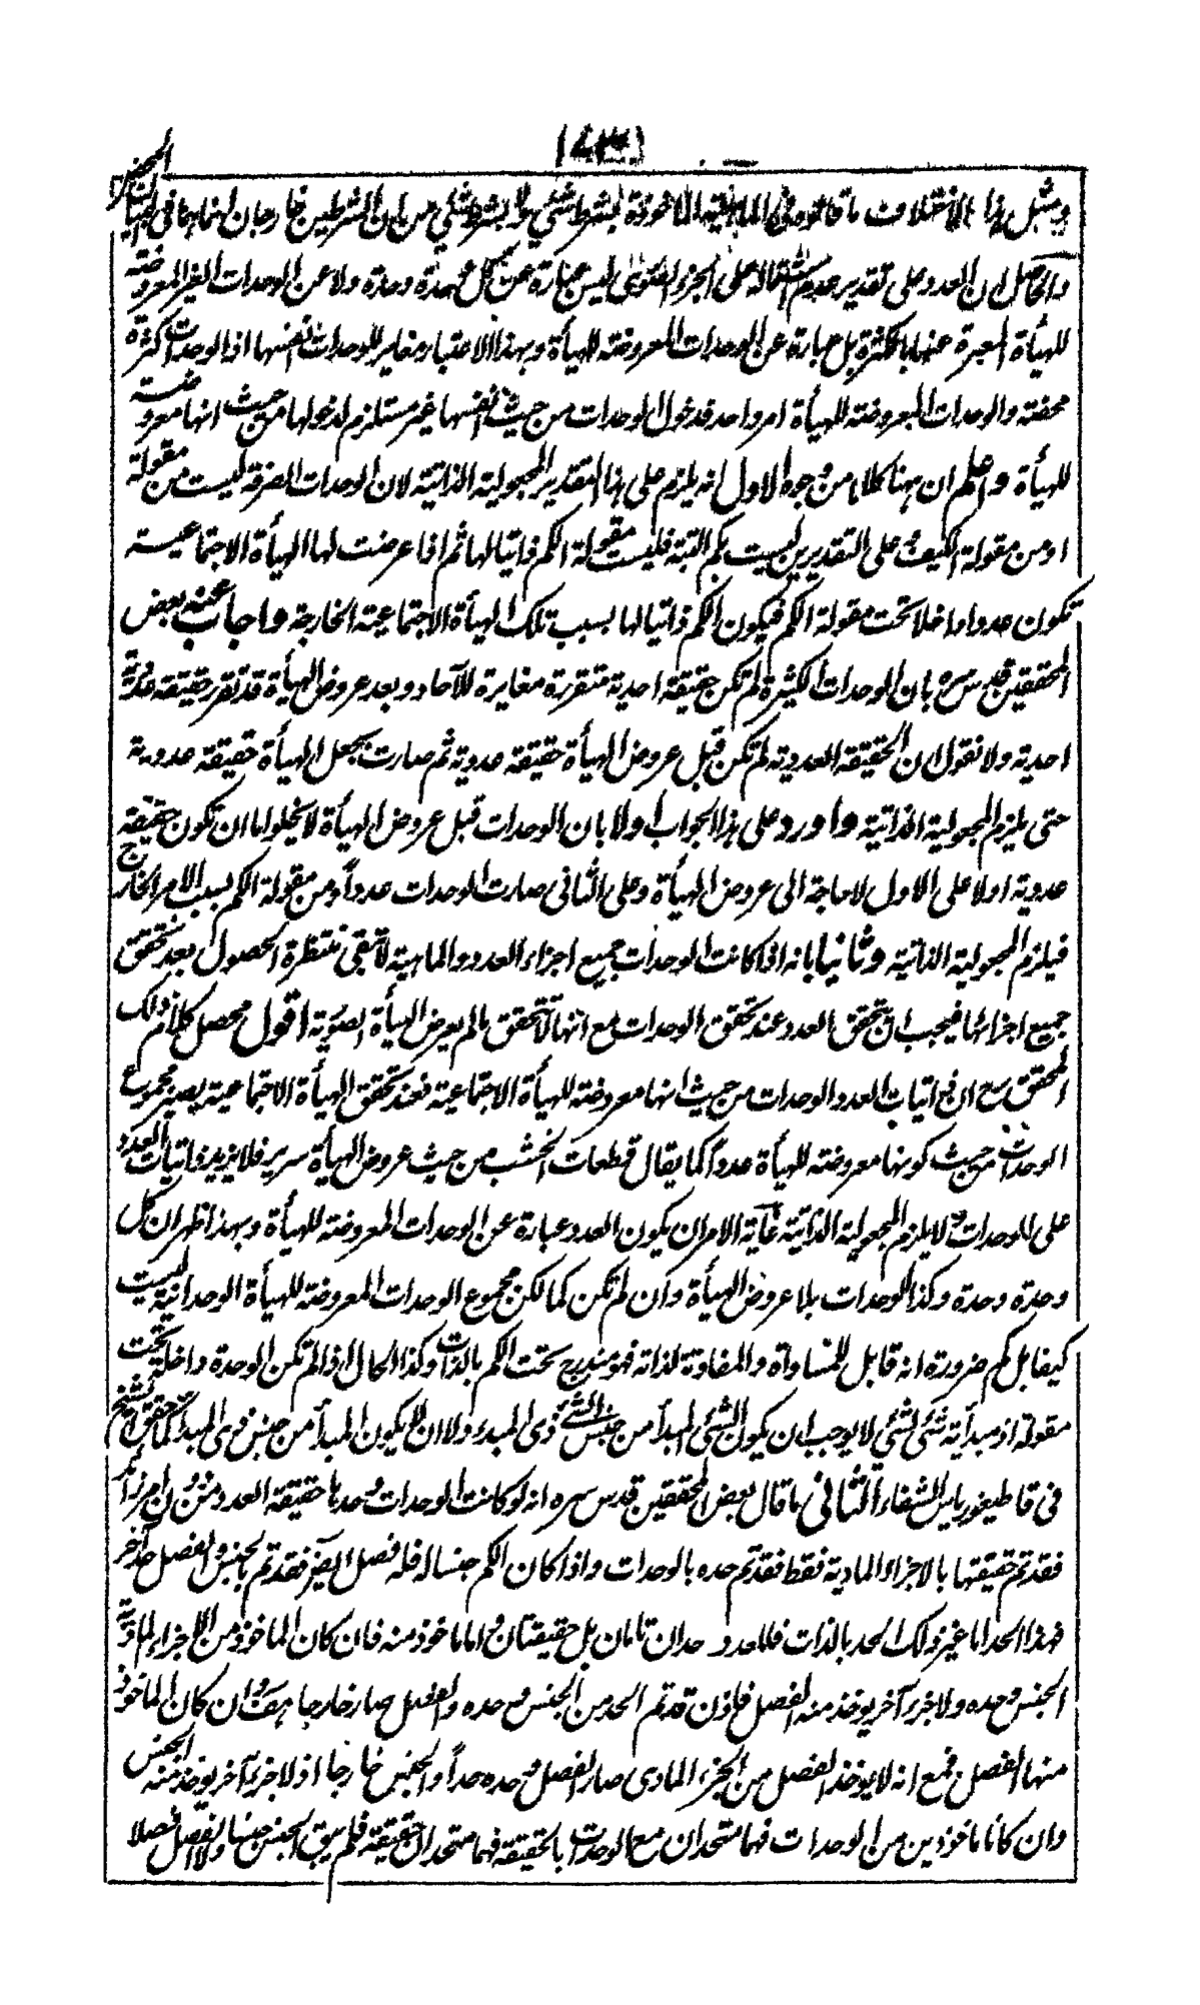 (١٧٣)
ومثل هذا الاختلاف ما قالوه فى الماهية الماخوذة بشرط شئي ولا بشرط شئي من ان الشرطين خارجان انما هما فى المحض
والحاصل ان العدد على تقدير عدم اشتماله على الجزء الصورى ليس عبارة عن كل وحدة وحدة ولا عن الوحدات الغير المعروضة
للهيأة المعبرة عنها بالكثرة بل عبارة عن الوحدات المعروضة للهيأة وبهذا الاعتبار مغاير للوحدات انفسها اذ الوحدات كثرة
محضة والوحدات المعروضة للهيأة امر واحد فدخول الوحدات من حيث انفسها غير مستلزم لدخولها من حيث انها معروضة
للهيأة واعلم ان ههنا كلاما من وجوه الاول انه يلزم على هذا التقدير المجعولية الذاتية لان الوحدات الصرفة ليست من مقولة
او من مقولة الكيف وعلى التقديرين ليست بكم البتة فليست مقولة الكم ذاتيا لها ثم اذا عرضت لها الهيأة الاجتماعية
تكون عددا داخلا تحت مقولة الكم فيكون الكم ذاتيا لها بسبب تلك الهيأة الاجتماعية الخارجة واجاب عنه بعض
المحققين قدس سره بان الوحدات الكثيرة لم تكن حقيقة احدية متقررة مغايرة للآحاد وبعد عروض الهيأة قد تقرر حقيقة عددية
احدية ولا نقول ان الحقيقة العددية لم تكن قبل عروض الهيأة حقيقة عددية ثم صارت بجعل الهيأة حقيقة عددية
حتى يلزم المجعولية الذاتية واورد على هذا الجواب اولا بان الوحدات قبل عروض الهيأة لا يخلو اما ان تكون حقيقة
عددية او لا على الاول لا حاجة الى عروض الهيأة وعلى الثانى صارت الوحدات عدداً ومن مقولة الكم بسبب الامر الخارج
فيلزم المجعولية الذاتية وثانيا بانه اذا كانت الوحدات جميع اجزاء العدد والماهية لا تبقى منتظرة الحصول بعد تحقق
جميع اجزائها فيجب ان يتحقق العدد عند تحقق الوحدات مع انها لا تتحقق ما لم يعرض الهيأة الصورية اقول محصل كلام ذلك
المحقق رح ان ذاتيات العدد الوحدات من حيث انها معروضة للهيأة الاجتماعية فعند تحقق الهيأة الاجتماعية يصير مجموع
الوحدات من حيث كونها معروضة للهيأة عدداً كما يقال قطعات الخشب من حيث عروض الهيأة سرير فلا يزيد ذاتيات العدد
على الوحدات ولا يلزم المجعولية الذاتية غاية الامر ان يكون العدد عبارة عن الوحدات المعروضة للهيأة وبهذا ظهر ان كل
وحدة وحدة وكذا الوحدات بلا عروض الهيأة وان لم تكن كما لكن مجموع الوحدات المعروضة للهيأة الوحدانية ليست
كيفا بل كم ضرورة انه قابل للمساواة والمفاوتة لذاته فهو مندرج تحت الكم بالذات وكذا الحال اذا لم تكن الوحدة داخلة تحت
مقولة اذ مبدأية شئي لشئي لا يوجب ان يكون الشئي المبدأ من جنس الشئي ذى المبدء ولا ان لا يكون المبدأ من جنس ذى المبدء كما حققه الشيخ
فى قاطيغورياس الشفاء الثانى ما قال بعض المحققين قدس سره انه لو كانت الوحدات وحدها حقيقة العدد من دون امر زائد
فقد تم حقيقتها بالاجزاء المادية فقط فقد تم حده بالوحدات واذا كان الكم جنسا له فله فصل ايضا فقد تم بالجنس والفصل حد آخر
فهذا الحد اما غير ذلك الحد بالذات فللعدد حدان تامان بل حقيقتان واما ماخوذ منه فان كان الماخوذ من الاجزاء المادية
الجنس وحده ولا جزء آخر يوخذ منه الفصل فاذن قد تم الحد من الجنس وحده والفصل صار خارجا هف وان كان الماخوذ
منها الفصل فمع انه لا يوخذ الفصل من الجزء المادى صار الفصل وحده حداً والجنس خارجا اذ لا جزء آخر يوخذ منه الجنس
وان كانا ماخوذين من الوحدات فهما متحدان مع الوحدات بالحقيقة فهما متحدان حقيقة فلم يبق الجنس جنسا ولا الفصل فصلا